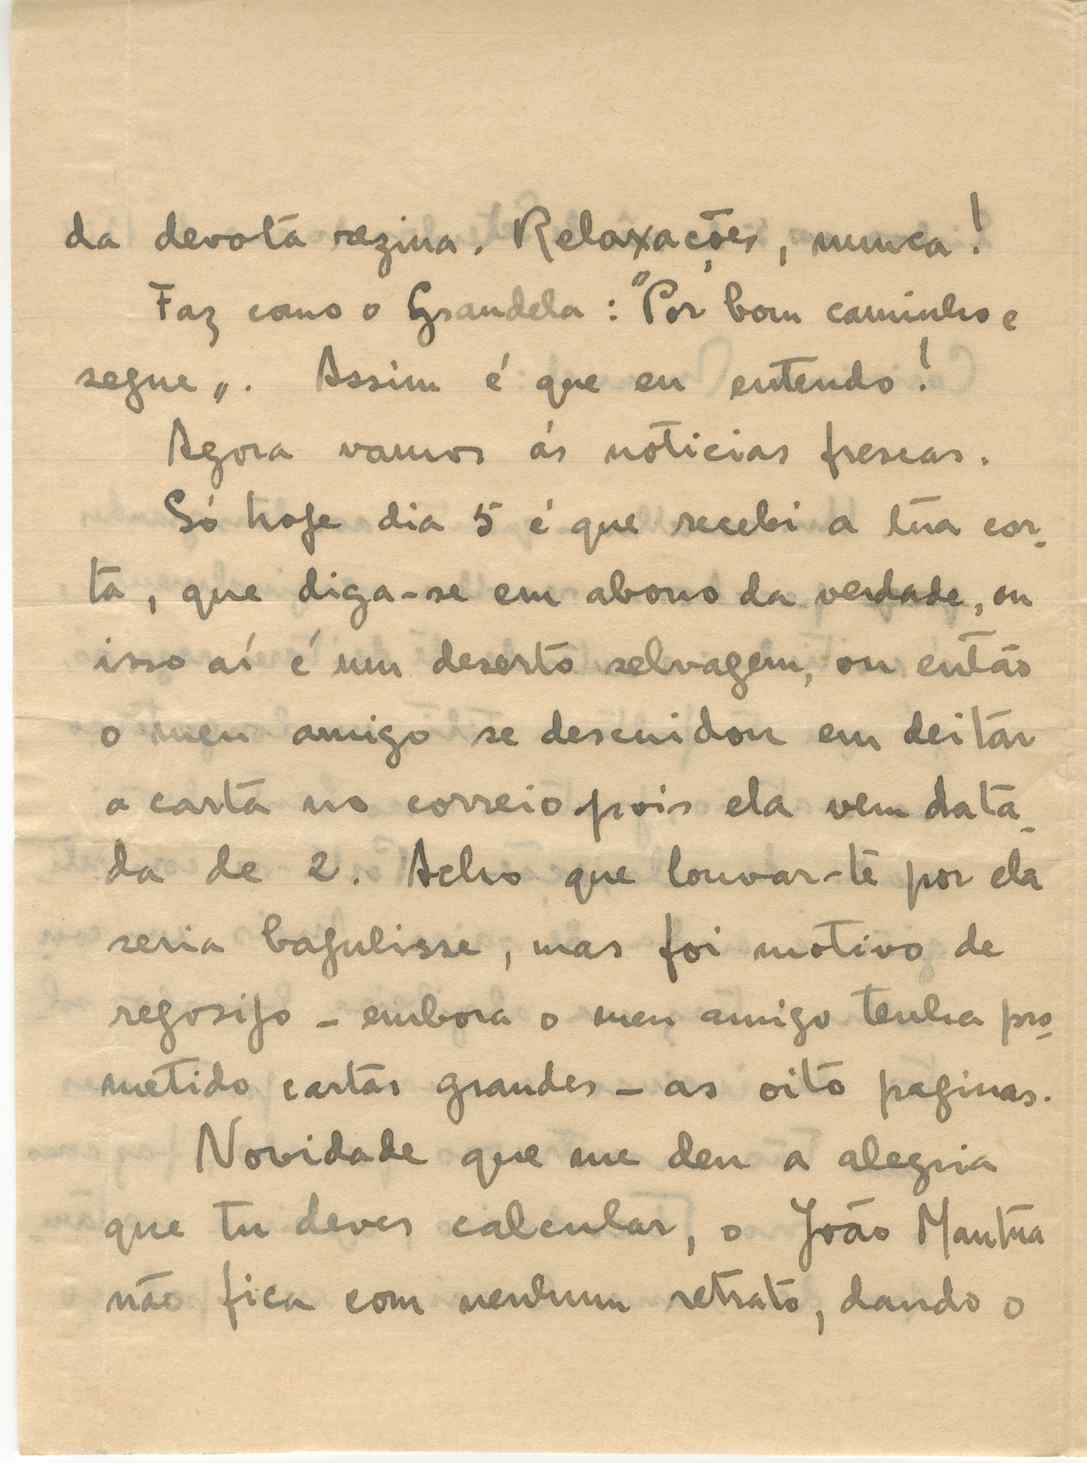 da devota rezina. Relaxações, nunca!
Faz como o Grandela: "Por bom caminho e
segue„. Assim é que eu entendo!
Agora vamos ás noticias frescas.
Só hoje dia 5 é que recebi a tua car-
ta, que diga-se em abono da verdade, ou
isso aí é um deserto selvagem, ou então
o meu amigo se descuidou em deitar
a carta no correio pois ela vem data-
da de 2. Acho que louvar-te por ela
seria bajulisse, mas foi motivo de
regosijo - embora o meu amigo tenha pro-
metido cartas grandes - as oito paginas.
Novidade que me deu a alegria
que tu deves calcular, o João Mantua
não fica com nenhum retrato, dando o